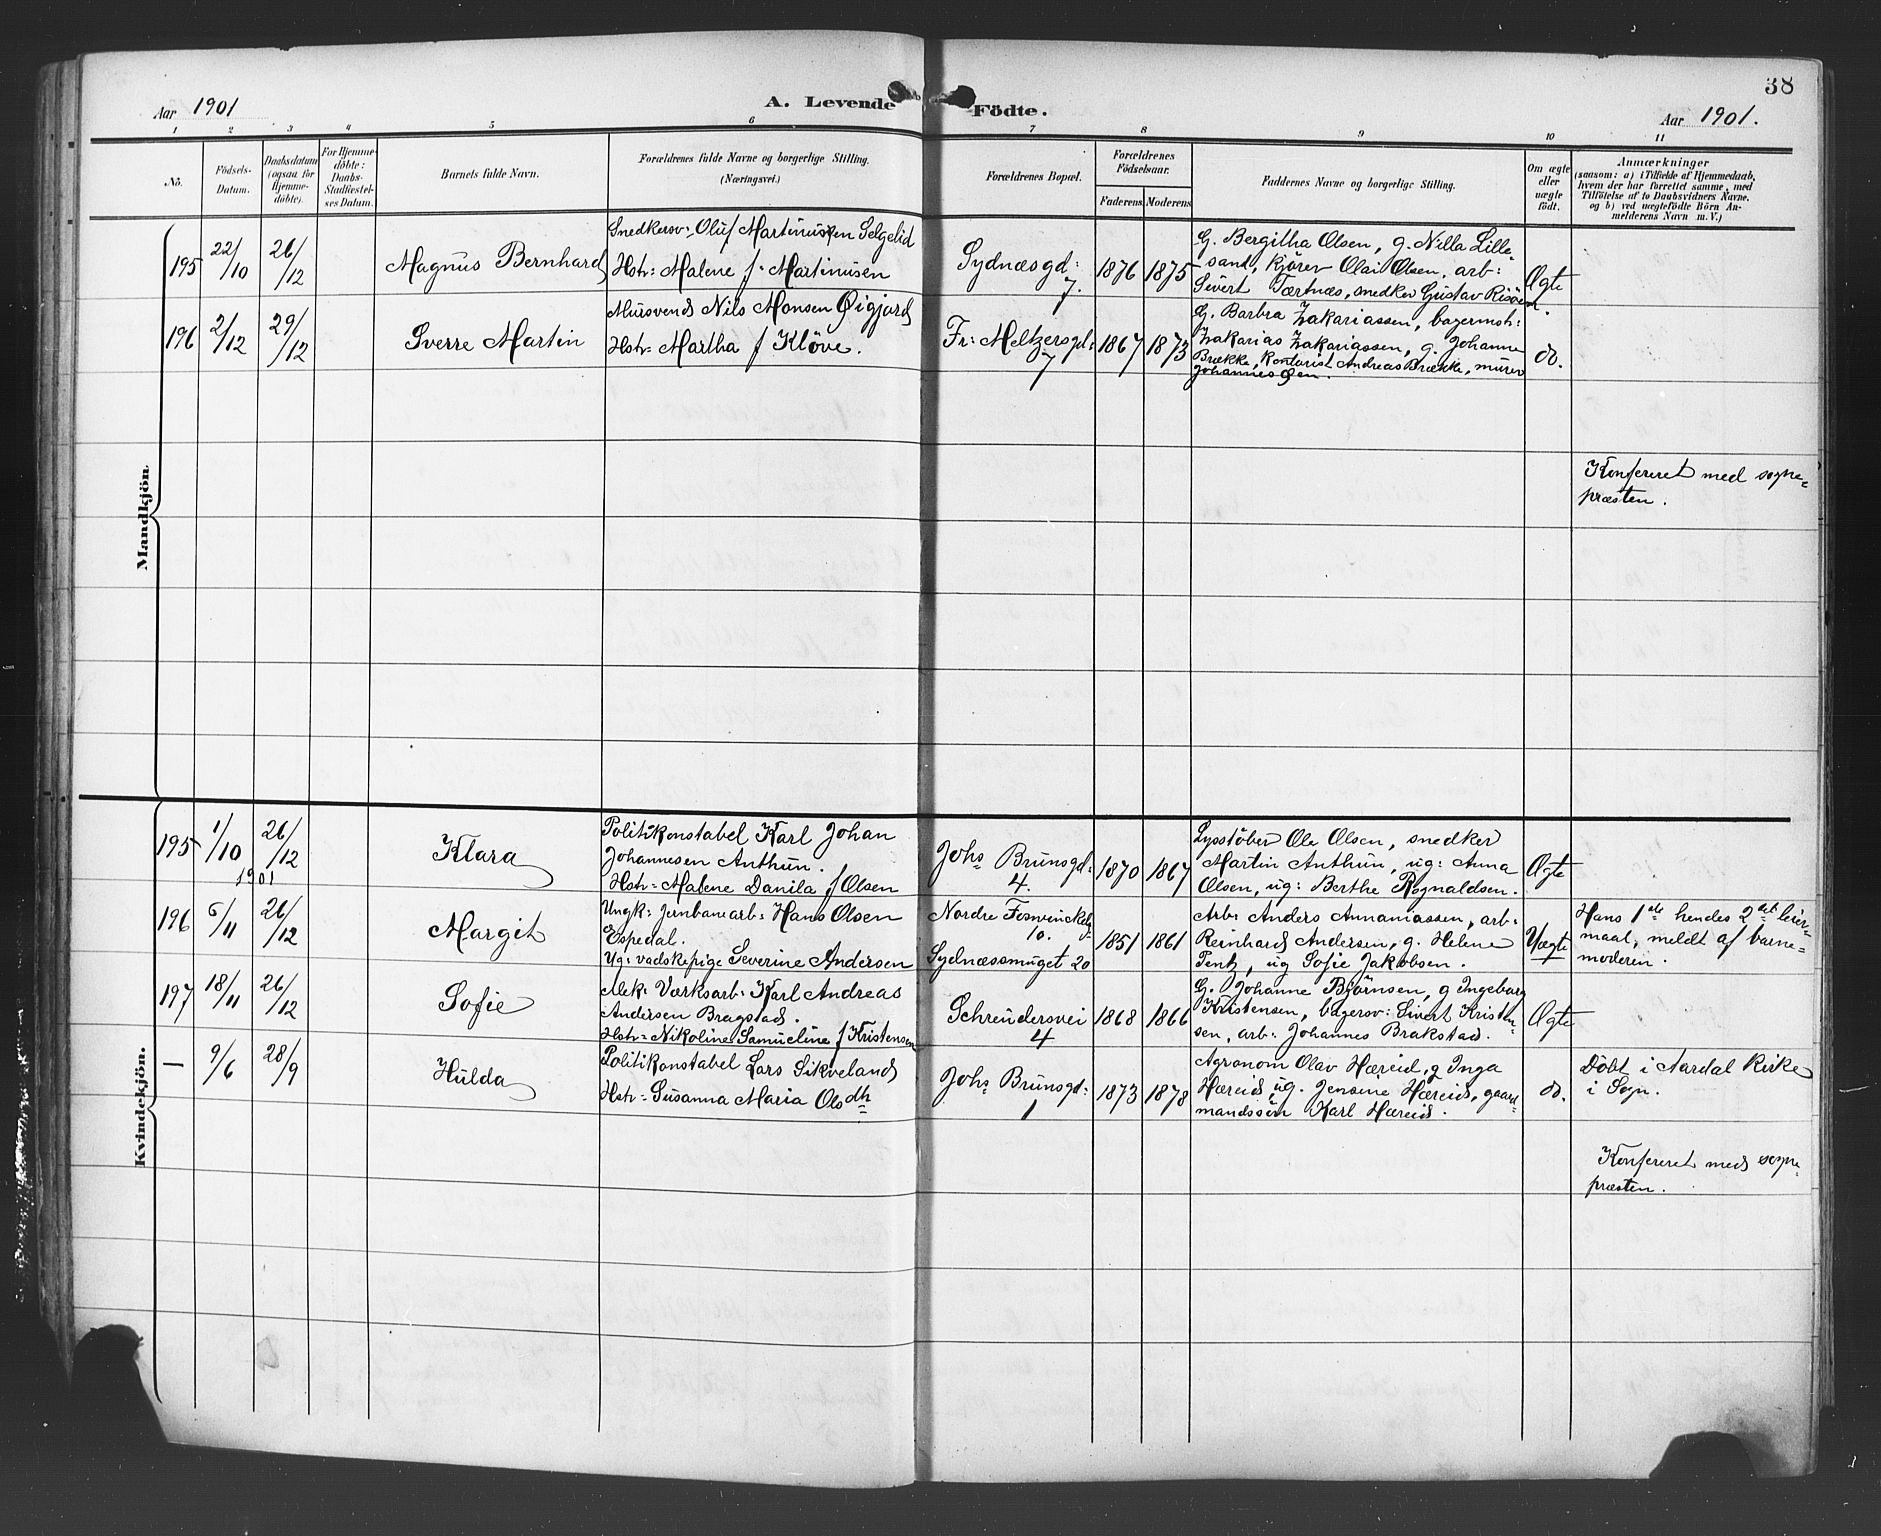 38
Aar 1901
A. Levende Födte.
Aar 1901.
1 2 3 4 5 6 7 8 9 10 11
No.
Födsels-Datum.
Daabsdatum (ogsaa for Hjemme-döbte).
For Hjemme-döbte: Daabs-Stadfæstel-ses Datum.
Barnets fulde Navn.
Forældrenes fulde Navne og borgerlige Stilling.
(Næringsvei.)
Forældrenes Bopæl.
Forældrenes Födselsaar.
Faderens Moderens
Faddernes Navne og borgerlige Stilling.
Om ægte eller uægte födt.
Anmærkninger
(saasom: a) i Tilfælde af Hjemmedaab,
hvem der har forrettet samme, med
Tilföielse af to Daabsvidners Navne.
og b) ved uægtefödte Börn An-
melderens Navn m. V.)
Mandkjön.
195 22/10 26/12 Magnus Bernhard
Snedkersv: Oluf Martinussen Selgelid
Hstr: Malene f. Martinusen
Sydnæsgd:
7.
1876 1875
G. Bergitha Olsen, g. Nilla Lille-
sand, kjörer Olai Olsen, arb:
Sivert Tærtnæs, snedker Gustav Risöen.
Ægte
196 2/12 29/12 Sverre Martin
Mursvend Nils Monsen Øigjord
Hstr: Martha f Klöve.
Fr: Meltzersgd:
7
1867 1873
G. Barbra Zakariassen, bagermstr:
Zakarias Zakariassen, g. Johanne
Brække, Kontorist Andreas Brække, murer
Johannes Øen.
do.
Konfereret med sogne-
præsten.
Kvindekjön.
195 1/10 1901 26/12 Klara
Politikonstabel Karl Johan
Johannesen Anthun.
Hstr: Malene Danila f Olsen
Johs Brunsgd:
4.
1870 1867
Lysstöber Ole Olsen, snedker
Martin Anthun, ug: Anna
Olsen, ug: Berthe Rognaldsen.
Ægte
196 5/11 26/12 Margit
Ungk: Jernbanearb: Hans Olsen
Espedal.
Ug: vadskepige Severine Andersen
Nordre
10.
Sydnæssmuget 20
1851 1861
Arb: Anders Annaniassen, arb:
Reinhard Andersen, g. Helene
Pentz, ug Sofie Jakobsen.
Uægte
Hans 1ste hendes 2det leier-
maal, meldt af barne-
moderen.
197 18/11 26/12 Sofie
Mek: Værksarb: Karl Andreas
Andersen Bragstad.
Hstr: Nikoline Samueline f Kristensen
Schreudersvei
4
1868 1866
G. Johanne Björnsen, g Ingeborg
Kristensen, bagersv: Sivert Kristen-
sen, arb: Johannes Brakstad.
Ægte
— 9/6 28/9 Hulda
Politikonstabel Lars Sikveland
Hstr: Susanna Maria Olsdtr
Johs Brunsgd:
1
1873 1878
Agronom Olav Hæreid, g Inga
Hæreid, ug. Jensine Hæreid, gaard-
mandssön Karl Hæreid.
do.
Döbt i Aardal Kirke
i Sogn.
Konfereret med sogne-
præsten.